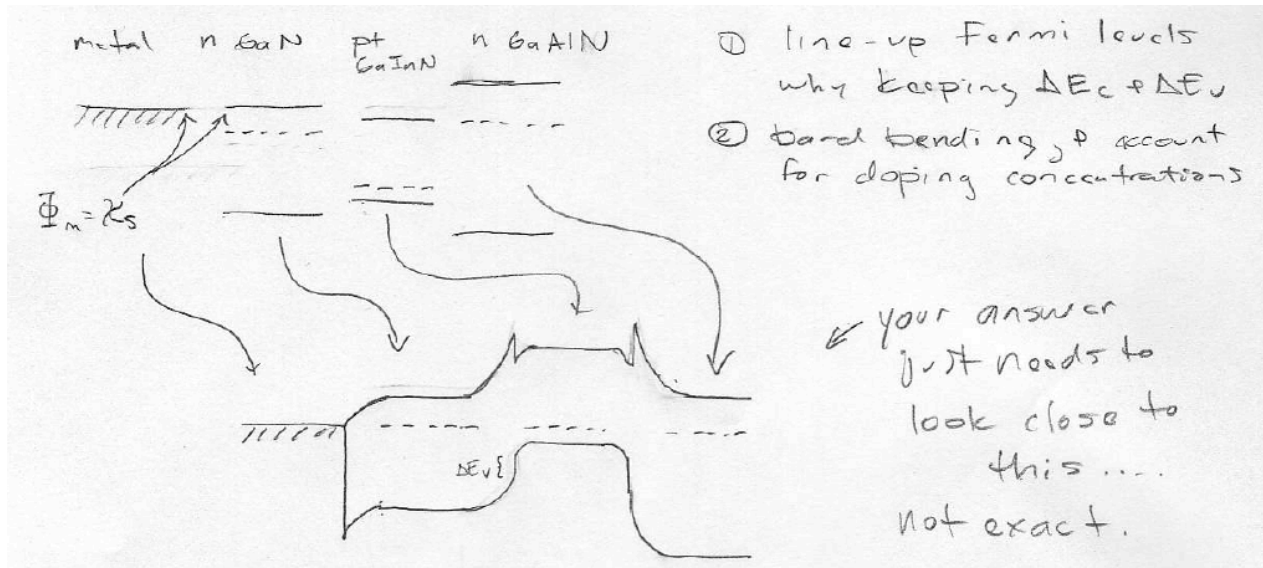 metal n GaN p+ GaInN n GaAlN
① line-up Fermi levels
why keeping ΔEc + ΔEv
② band bending, & account
for doping concentrations
Φm = χs
ΔEv{
your answer
just needs to
look close to
this ....
not exact.